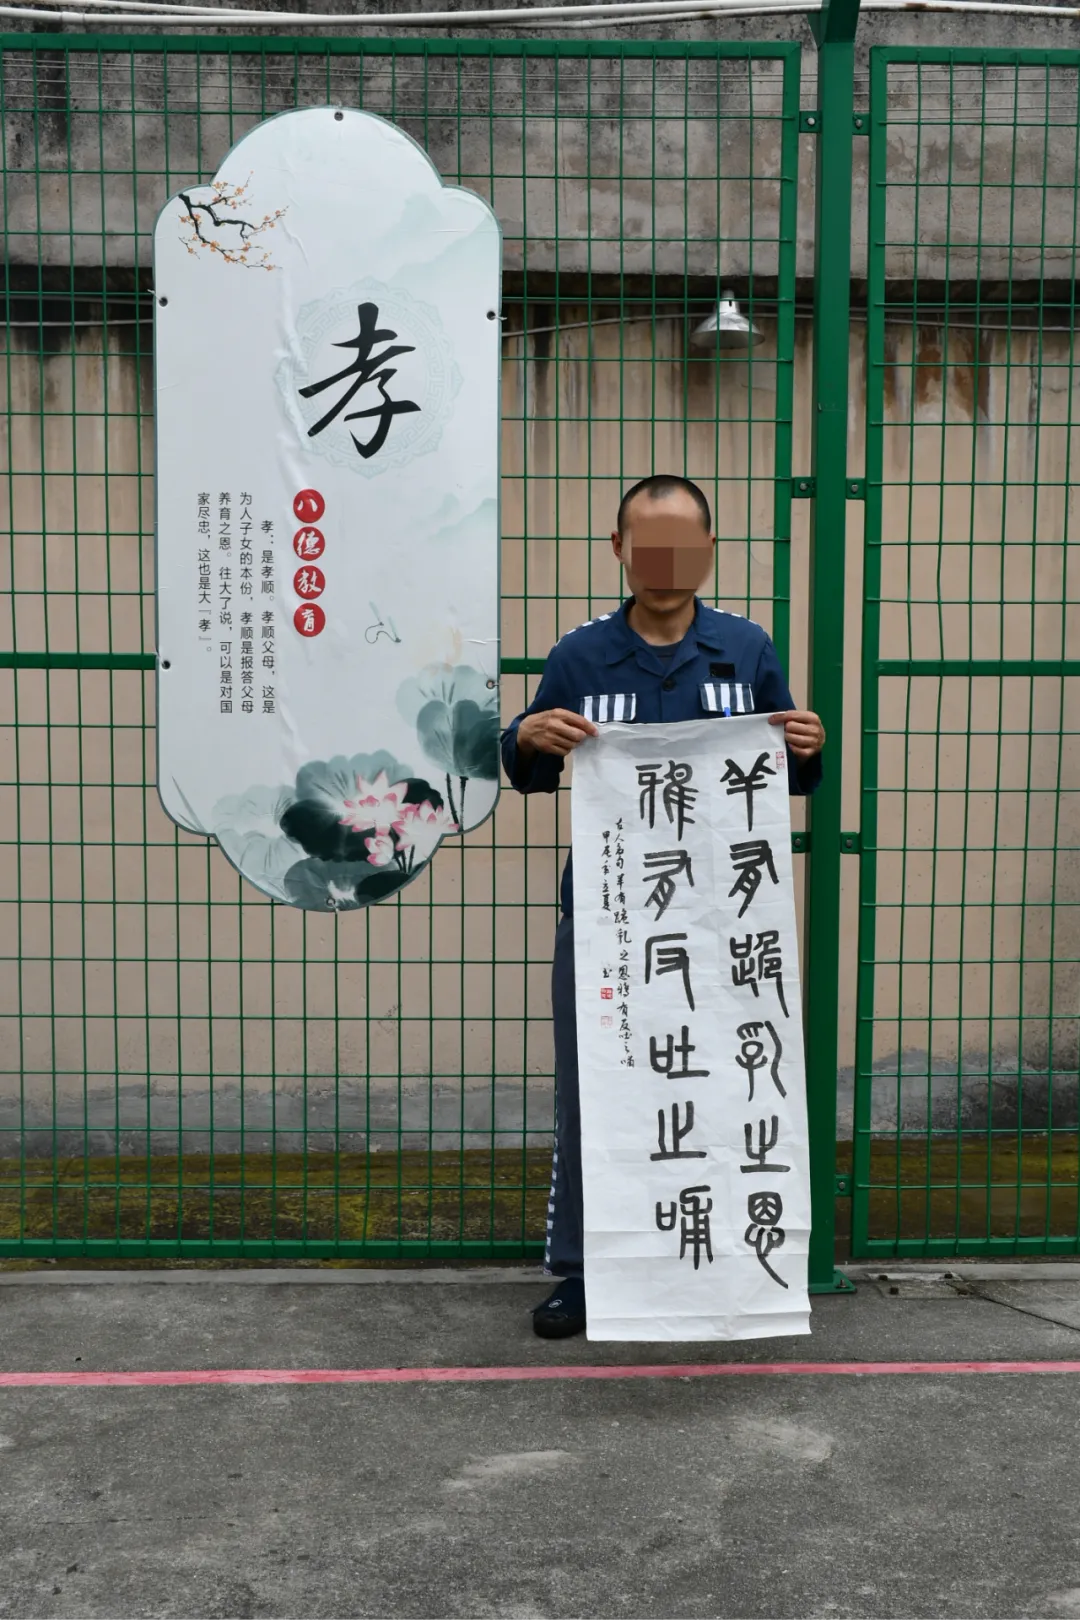 孝
八德教育
孝：是孝顺。孝顺父母，这是
为人子女的本份，孝顺是报答父母
养育之恩。往大了说，可以是对国
家尽忠，这也是大「孝」。
羊有跪乳之恩
鸦有反吐之哺
古人名句羊有跪乳之恩鸦有反吐之哺
甲辰年立夏